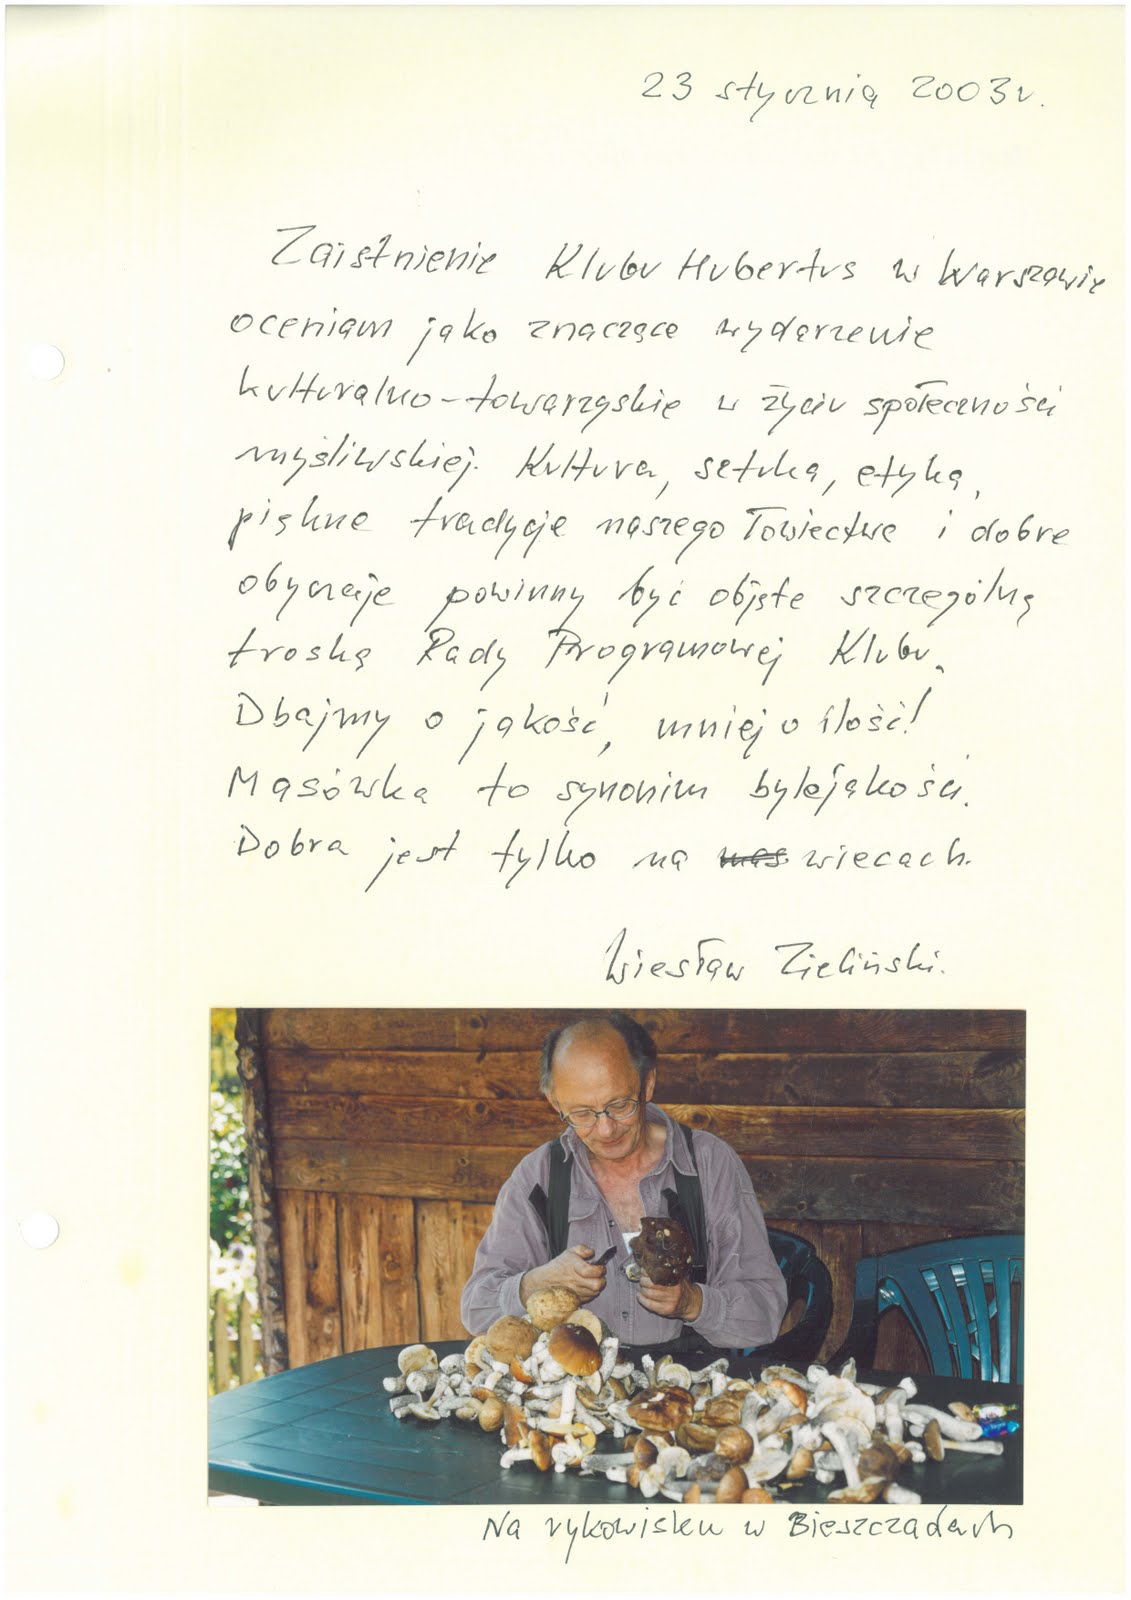 23 stycznia 2003 r.
Zaistnienie Klubu Hubertus w Warszawie
oceniam jako znaczące wydarzenie
kulturalno-towarzyskie w życiu społeczności
myśliwskiej. Kultura, sztuka, etyka,
piękne tradycje naszego Łowiectwa i dobre
obyczaje powinny być objęte szczególną
troską Rady Programowej Klubu.
Dbajmy o jakość, mniej o ilość!
Masówka to synonim bylejakości.
Dobra jest tylko na wiecach.
Wiesław Zieliński.
Na rykowisku w Bieszczadach